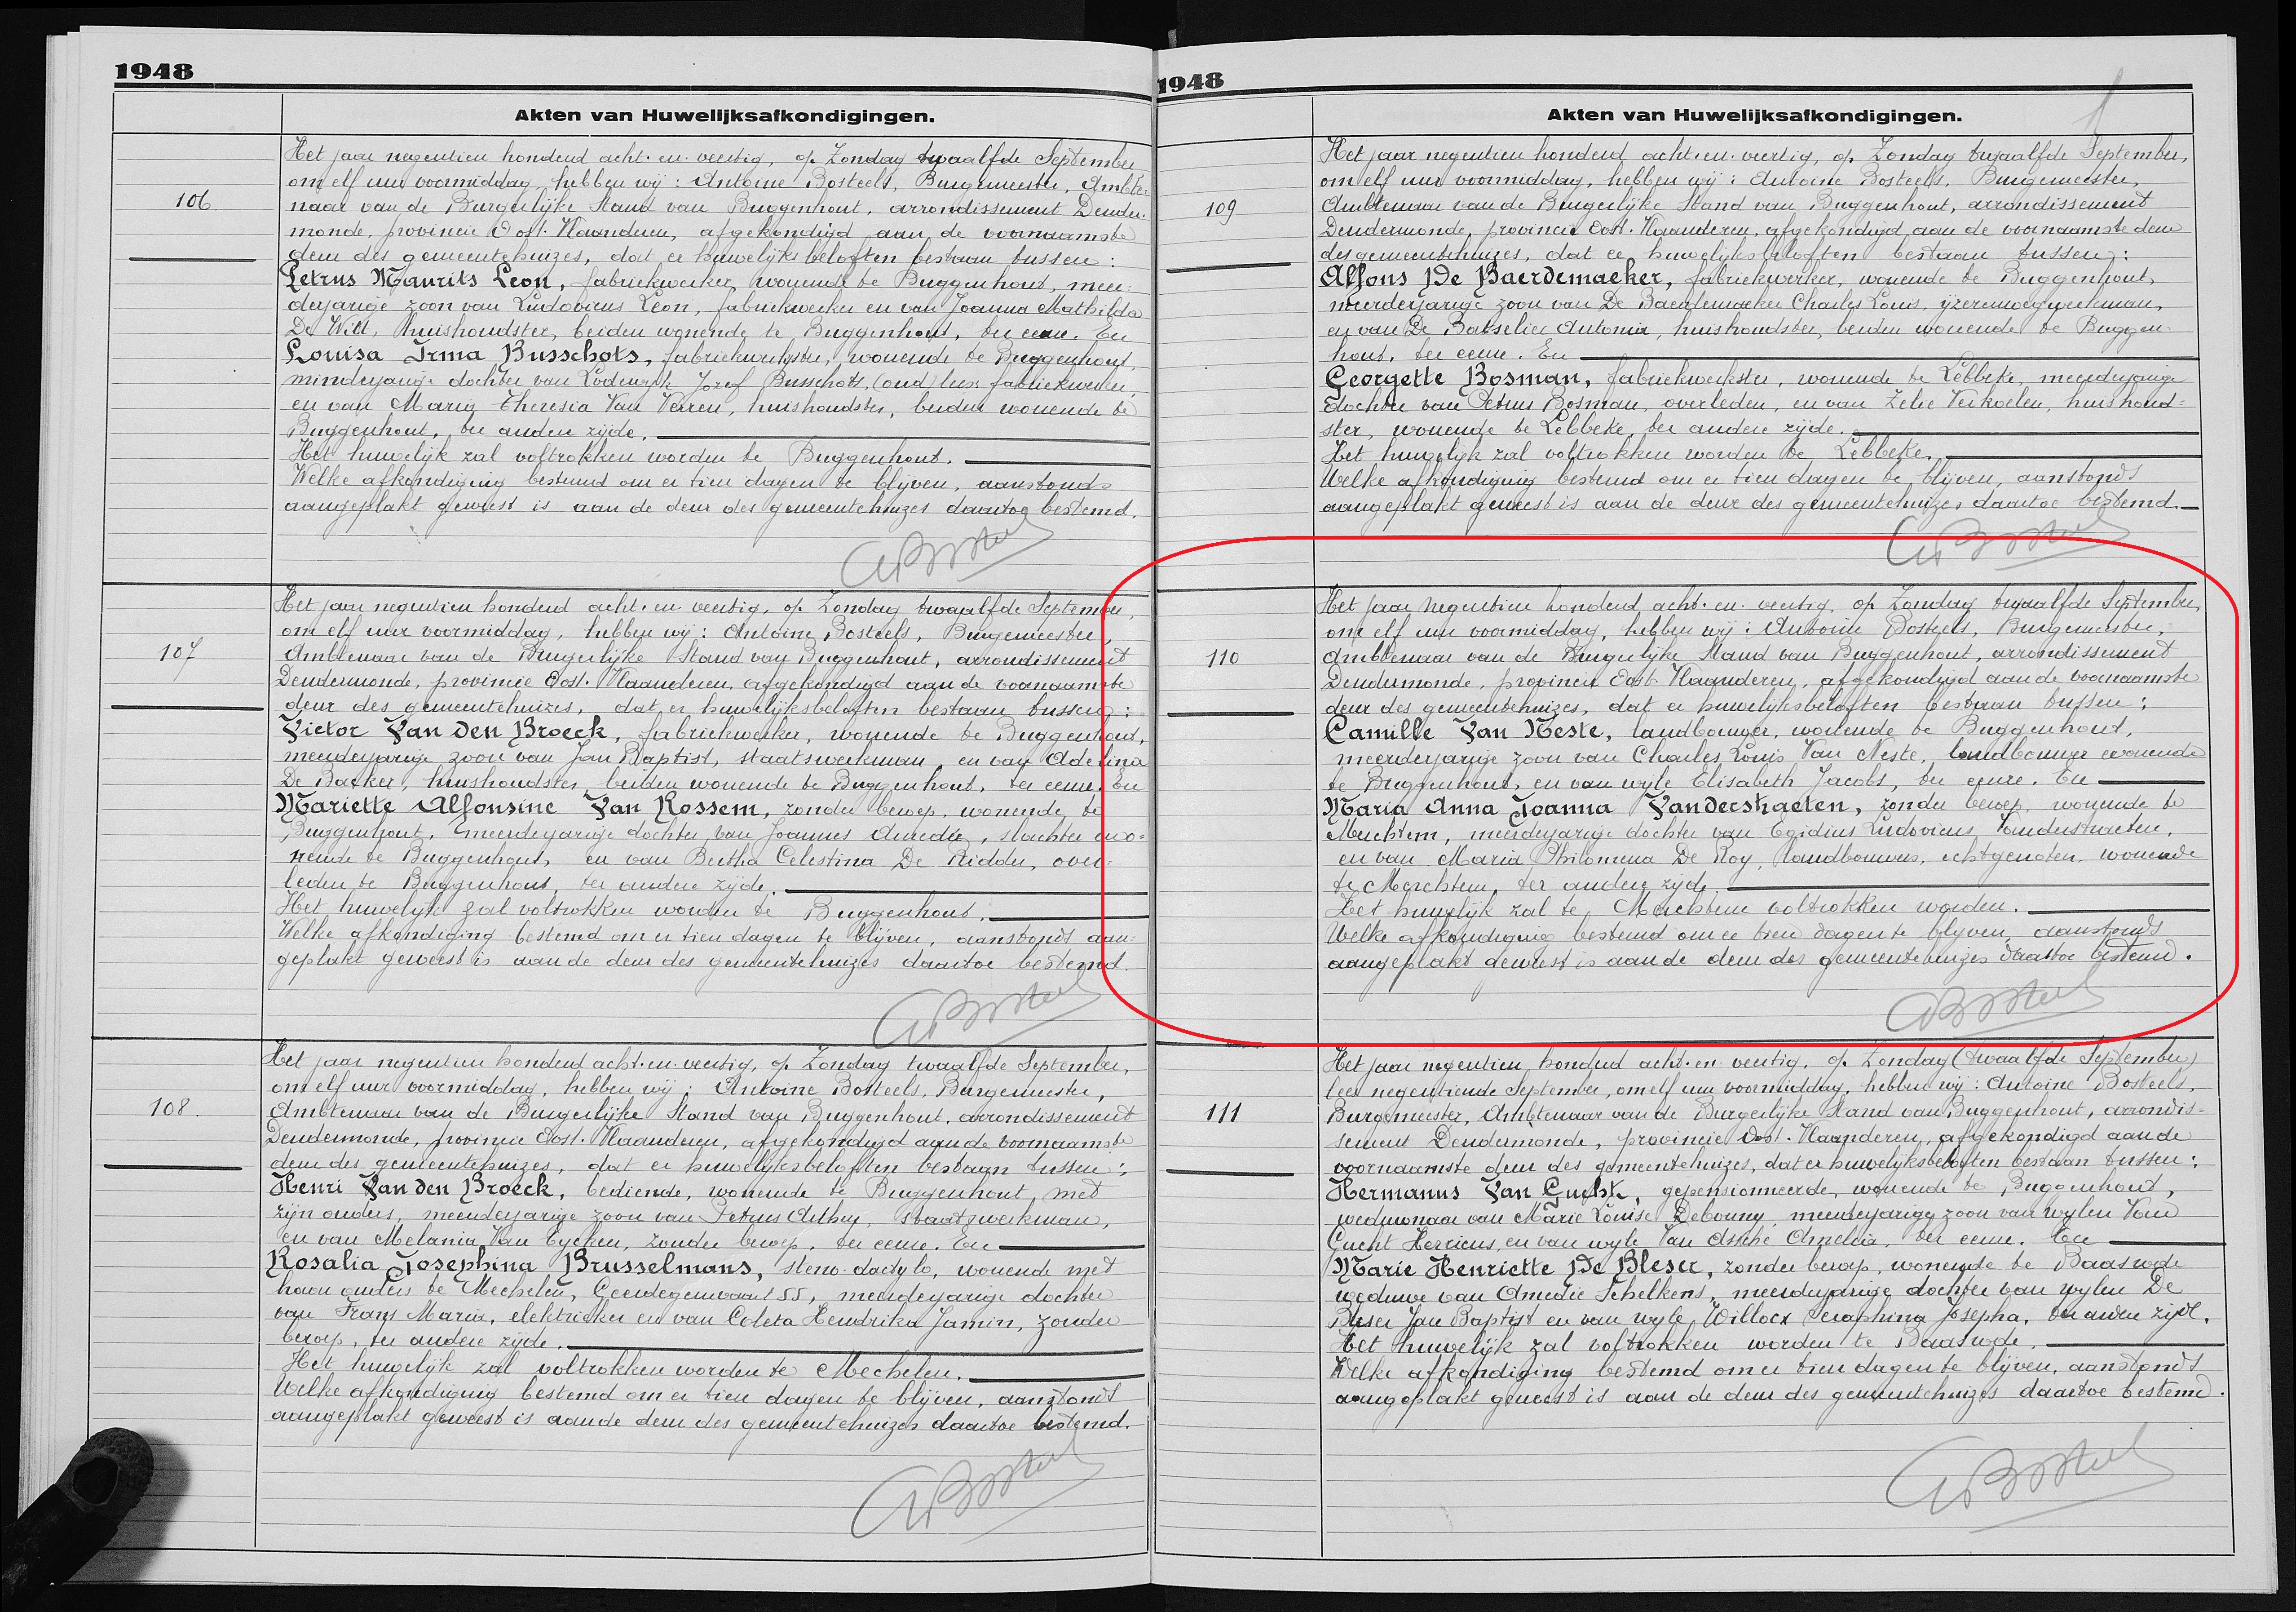 1948
Akten van Huwelijksafkondigingen.
106
Het jaar negentien honderd acht-en-veertig, op Zondag twaalfde September
om elf uur voormiddag, hebben wij: Antoine Bosteels, Burgemeester, Ambte-
naar van de Burgerlijke Stand van Buggenhout, arrondissement Dender-
monde, provincie Oost-Vlaanderen, afgekondigd aan de voornaamste
deur des gemeentehuizes, dat er huwelijksbeloften bestaan tussen:
Petrus Maurits Leon, fabriekwerker, wonende te Buggenhout, meer-
derjarige zoon van Ludovicus Leon, fabriekwerker en van Joanna Mathilda
De Wilt, huishoudster, beiden wonende te Buggenhout, ter eene. En
Louisa Irma Busschots, fabriekwerkster, wonende te Buggenhout,
minderjarige dochter van Lodewijk Jozef Busschots, (oud) lees: fabriekwerker,
en van Maria Theresia Van Verren, huishoudster, beiden wonende te
Buggenhout, ter andere zijde.
Het huwelijk zal voltrokken worden te Buggenhout.
Welke afkondiging bestemd om er tien dagen te blijven, aanstonds
aangeplakt geweest is aan de deur des gemeentehuizes daartoe bestemd.
ABosteels
107
Het jaar negentien honderd acht-en-veertig, op Zondag twaalfde September,
om elf uur voormiddag, hebben wij: Antoine Bosteels, Burgemeester,
Ambtenaar van de Burgerlijke Stand van Buggenhout, arrondissement
Dendermonde, provincie Oost-Vlaanderen, afgekondigd aan de voornaamste
deur des gemeentehuizes, dat er huwelijksbeloften bestaan tussen:
Victor Van den Broeck, fabriekwerker, wonende te Buggenhout,
meerderjarige zoon van Jan Baptist, staatswerkman, en van Adelina
De Backer, huishoudster, beiden wonende te Buggenhout, ter eene. En
Mariette Alfonsine Van Rossem, zonder beroep, wonende te
Buggenhout, meerderjarige dochter van Joannes Amedée, slachter wo-
nende te Buggenhout, en van Bertha Celestina De Ridder, over-
leden te Buggenhout, ter andere zijde.
Het huwelijk zal voltrokken worden te Buggenhout.
Welke afkondiging bestemd om er tien dagen te blijven, aanstonds aan-
geplakt geweest is aan de deur des gemeentehuizes daartoe bestemd.
ABosteels
108.
Het jaar negentien honderd acht-en-veertig, op Zondag twaalfde September,
om elf uur voormiddag, hebben wij: Antoine Bosteels, Burgemeester,
Ambtenaar van de Burgerlijke Stand van Buggenhout, arrondissement
Dendermonde, provincie Oost-Vlaanderen, afgekondigd aan de voornaamste
deur des gemeentehuizes, dat er huwelijksbeloften bestaan tussen:
Henri Van den Broeck, bediende, wonende te Buggenhout met
zijn ouders, meerderjarige zoon van Petrus Arthur, staatswerkman,
en van Melania Van Eycken, zonder beroep, ter eene. En
Rosalia Josephina Brusselmans, steno-dactylo, wonende met
haar ouders te Mechelen, Geerdegemvaart 55, meerderjarige dochter
van Frans Maria, elektrieker en van Coleta Hendrika Jamin, zonder
beroep, ter andere zijde.
Het huwelijk zal voltrokken worden te Mechelen.
Welke afkondiging bestemd om er tien dagen te blijven, aanstonds
aangeplakt geweest is aan de deur des gemeentehuizes daartoe bestemd.
ABosteels
1948
Akten van Huwelijksafkondigingen.
109
Het jaar negentien honderd acht-en-veertig, op Zondag twaalfde September,
om elf uur voormiddag, hebben wij: Antoine Bosteels, Burgemeester,
Ambtenaar van de Burgerlijke Stand van Buggenhout, arrondissement
Dendermonde, provincie Oost-Vlaanderen, afgekondigd aan de voornaamste deur
des gemeentehuizes, dat er huwelijksbeloften bestaan tussen:
Alfons De Baerdemaeker, fabriekwerker, wonende te Buggenhout,
meerderjarige zoon van De Baerdemaeker Charles Louis, ijzerenwegwerkman,
en van De Batselier Antonia, huishoudster, beiden wonende te Buggen-
hout, ter eene. En
Georgette Bosman, fabriekwerkster, wonende te Lebbeke, meerderjarige
dochter van Petrus Bosman, overleden, en van Zelie Verkoelen, huishoud-
ster, wonende te Lebbeke, ter andere zijde.
Het huwelijk zal voltrokken worden te Lebbeke.
Welke afkondiging bestemd om er tien dagen te blijven, aanstonds
aangeplakt geweest is aan de deur des gemeentehuizes daartoe bestemd.
ABosteels
110
Het jaar negentien honderd acht-en-veertig, op Zondag twaalfde September,
om elf uur voormiddag, hebben wij: Antoine Bosteels, Burgemeester,
Ambtenaar van de Burgerlijke Stand van Buggenhout, arrondissement
Dendermonde, provincie Oost-Vlaanderen, afgekondigd aan de voornaamste
deur des gemeentehuizes, dat er huwelijksbeloften bestaan tussen:
Camille Van Neste, landbouwer, wonende te Buggenhout,
meerderjarige zoon van Charles Louis Van Neste, landbouwer wonende
te Buggenhout, en van wijle Elisabeth Jacobs, ter eene. En
Maria Anna Joanna Vanderstraeten, zonder beroep, wonende te
Merchtem, meerderjarige dochter van Egidius Ludovicus Vanderstraeten,
en van Maria Philomena De Roy, landbouwers, echtgenoten, wonende
te Merchtem, ter andere zijde.
Het huwelijk zal te Merchtem voltrokken worden.
Welke afkondiging bestemd om er tien dagen te blijven, aanstonds
aangeplakt geweest is aan de deur des gemeentehuizes daartoe bestemd.
ABosteels
111
Het jaar negentien honderd acht-en-veertig, op Zondag (twaalfde September)
lees negentiende September, om elf uur voormiddag, hebben wij: Antoine Bosteels,
Burgemeester, Ambtenaar van de Burgerlijke Stand van Buggenhout, arrondis-
sement Dendermonde, provincie Oost-Vlaanderen, afgekondigd aan de
voornaamste deur des gemeentehuizes, dat er huwelijksbeloften bestaan tussen:
Hermanus Van Gucht, gepensionneerde, wonende te Buggenhout,
weduwnaar van Marie Louise Debouny, meerderjarige zoon van wijlen Van
Gucht Henricus, en van wijle Van Assche Amelia, ter eene. En
Marie Henriette De Bleser, zonder beroep, wonende te Baasrode
weduwe van Amedie Schelkens, meerderjarige dochter van wijlen De
Bleser Jan Baptist en van wijle Willocx Seraphina Josepha, ter andere zijde.
Het huwelijk zal voltrokken worden te Baasrode.
Welke afkondiging bestemd om er tien dagen te blijven, aanstonds
aangeplakt geweest is aan de deur des gemeentehuizes daartoe bestemd.
ABosteels